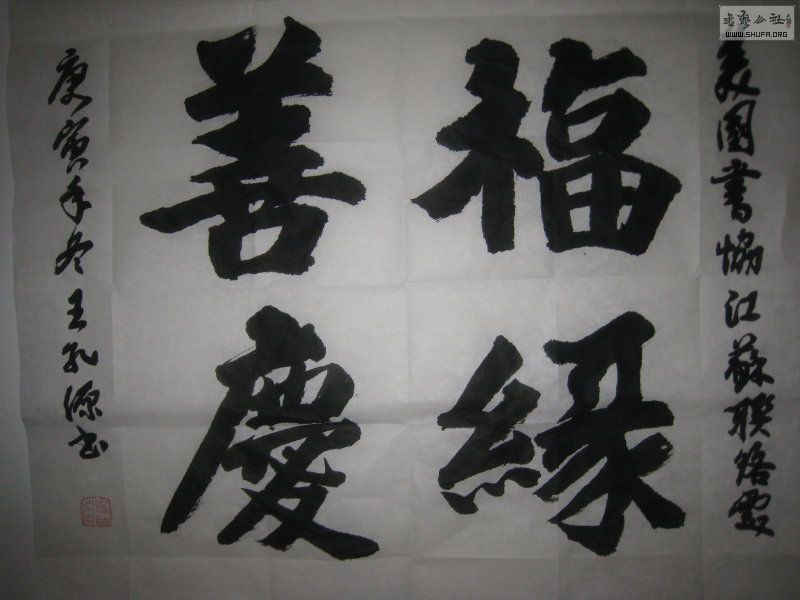 美國書協江蘇聯絡處
福緣
善慶
庚寅年冬王孔源书
書藝公社
WWW.SHUFA.ORG